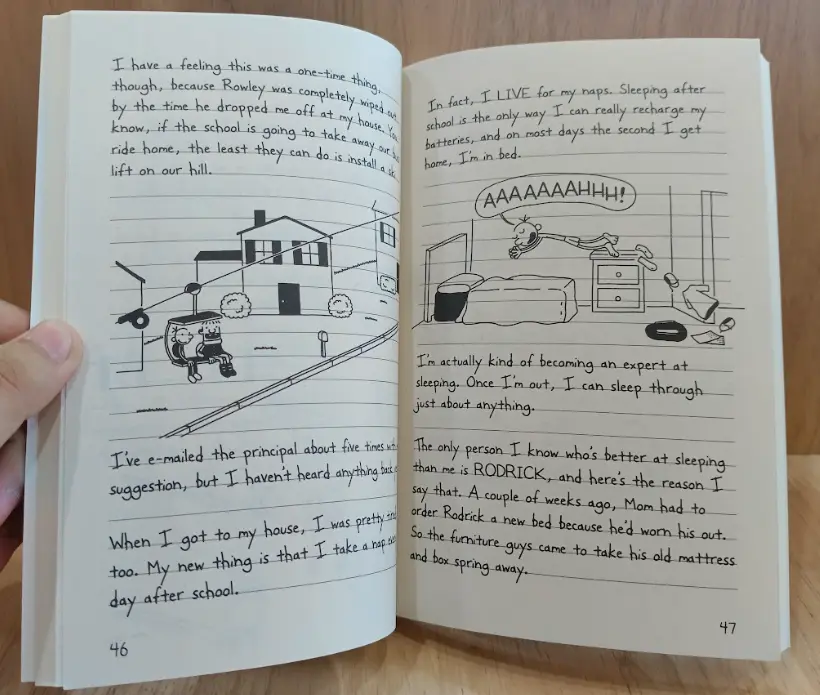 I have a feeling this was a one-time thing,
though, because Rowley was completely wiped out
by the time he dropped me off at my house. You
know, if the school is going to take away our bus
ride home, the least they can do is install a ski
lift on our hill.
I've e-mailed the principal about five times with
suggestion, but I haven't heard anything back
When I got to my house, I was pretty
too. My new thing is that I take a nap
day after school.
46
In fact, I LIVE for my naps. Sleeping after
school is the only way I can really recharge my
batteries, and on most days the second I get
home, I'm in bed.
AAAAAAAHHH!
I'm actually kind of becoming an expert at
sleeping. Once I'm out, I can sleep through
just about anything.
The only person I know who's better at sleeping
than me is RODRICK, and here's the reason I
say that. A couple of weeks ago, Mom had to
order Rodrick a new bed because he'd worn his out.
So the furniture guys came to take his old mattress
and box spring away.
47